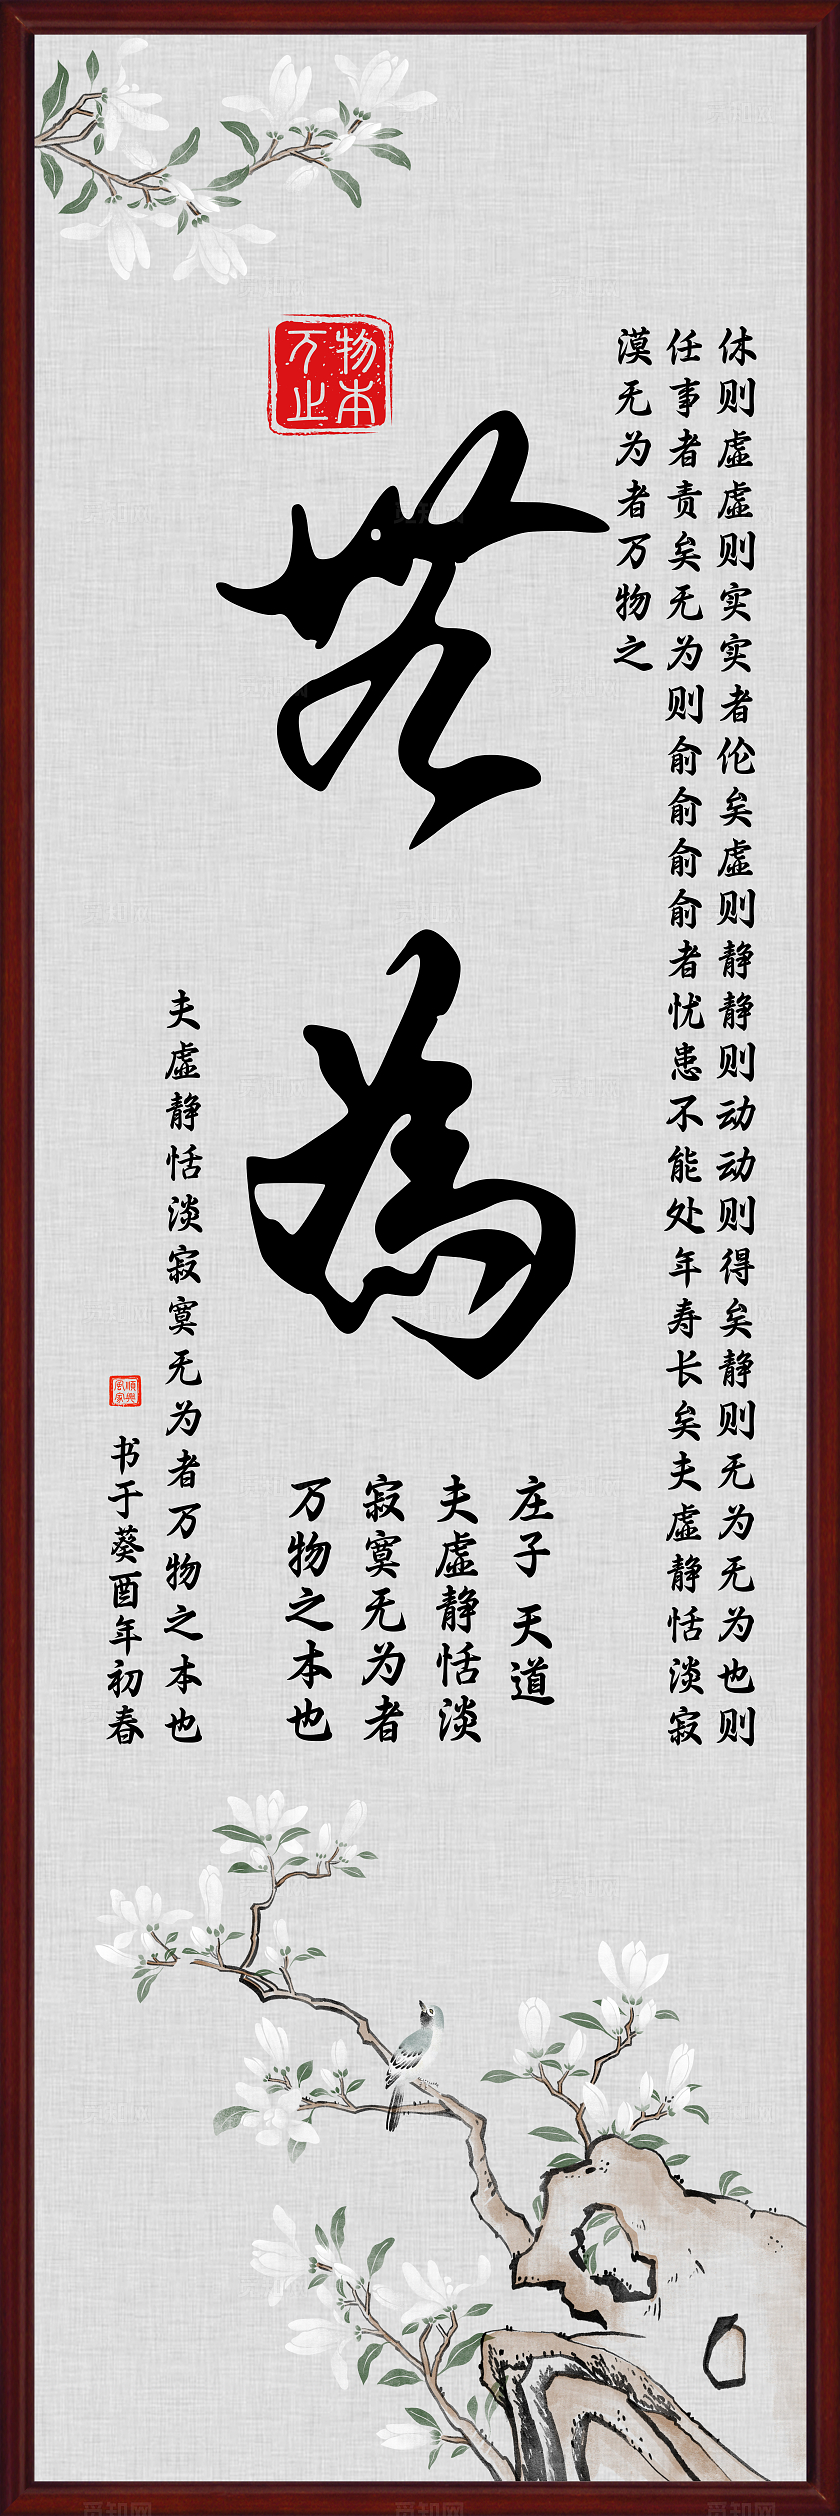 休则虚虚则实实者伦矣虚则静静则动动则得矣静则无为无为也则
任事者责矣无为则俞俞俞俞者忧患不能处年寿长矣夫虚静恬淡寂
漠无为者万物之
物本
万止
無為
庄子 天道
夫虚静恬淡
寂寞无为者
万物之本也
夫虚静恬淡寂寞无为者万物之本也
书于葵酉年初春